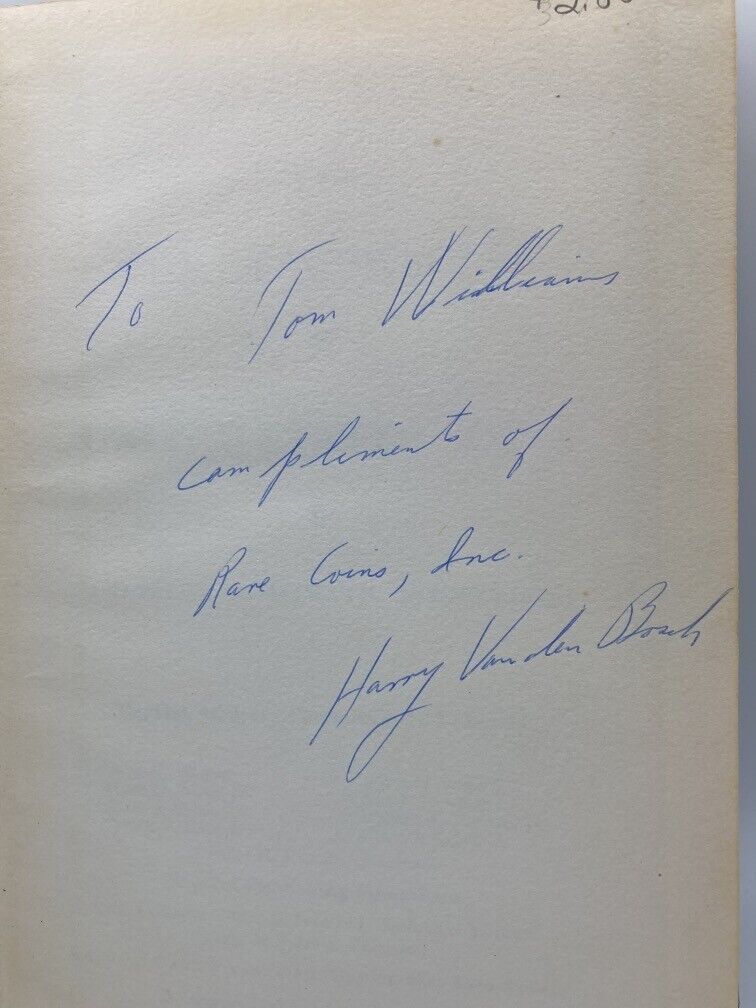 $2.00
To Tom Williams
compliments of
Rare Coins, Inc.
Harry Vanden Bosch